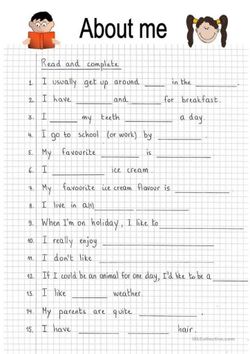 About me
Read and complete
1. I usually get up around _____ in the _____.
2. I have _____ and _____ for breakfast.
3. I _____ my teeth _____ a day.
4. I go to school (or work) by _____.
5. My favourite _____ is _____.
6. I _____ ice cream.
7. My favourite ice cream flavour is _____.
8. I live in a(n) _____
9. When I'm on holiday, I like to _____.
10. I really enjoy _____.
11. I don't like _____.
12. If I could be an animal for one day, I'd like to be a _____.
13. I like _____ weather.
14. My parents are quite _____.
15. I have _____ _____ hair.
iSLCollective.com